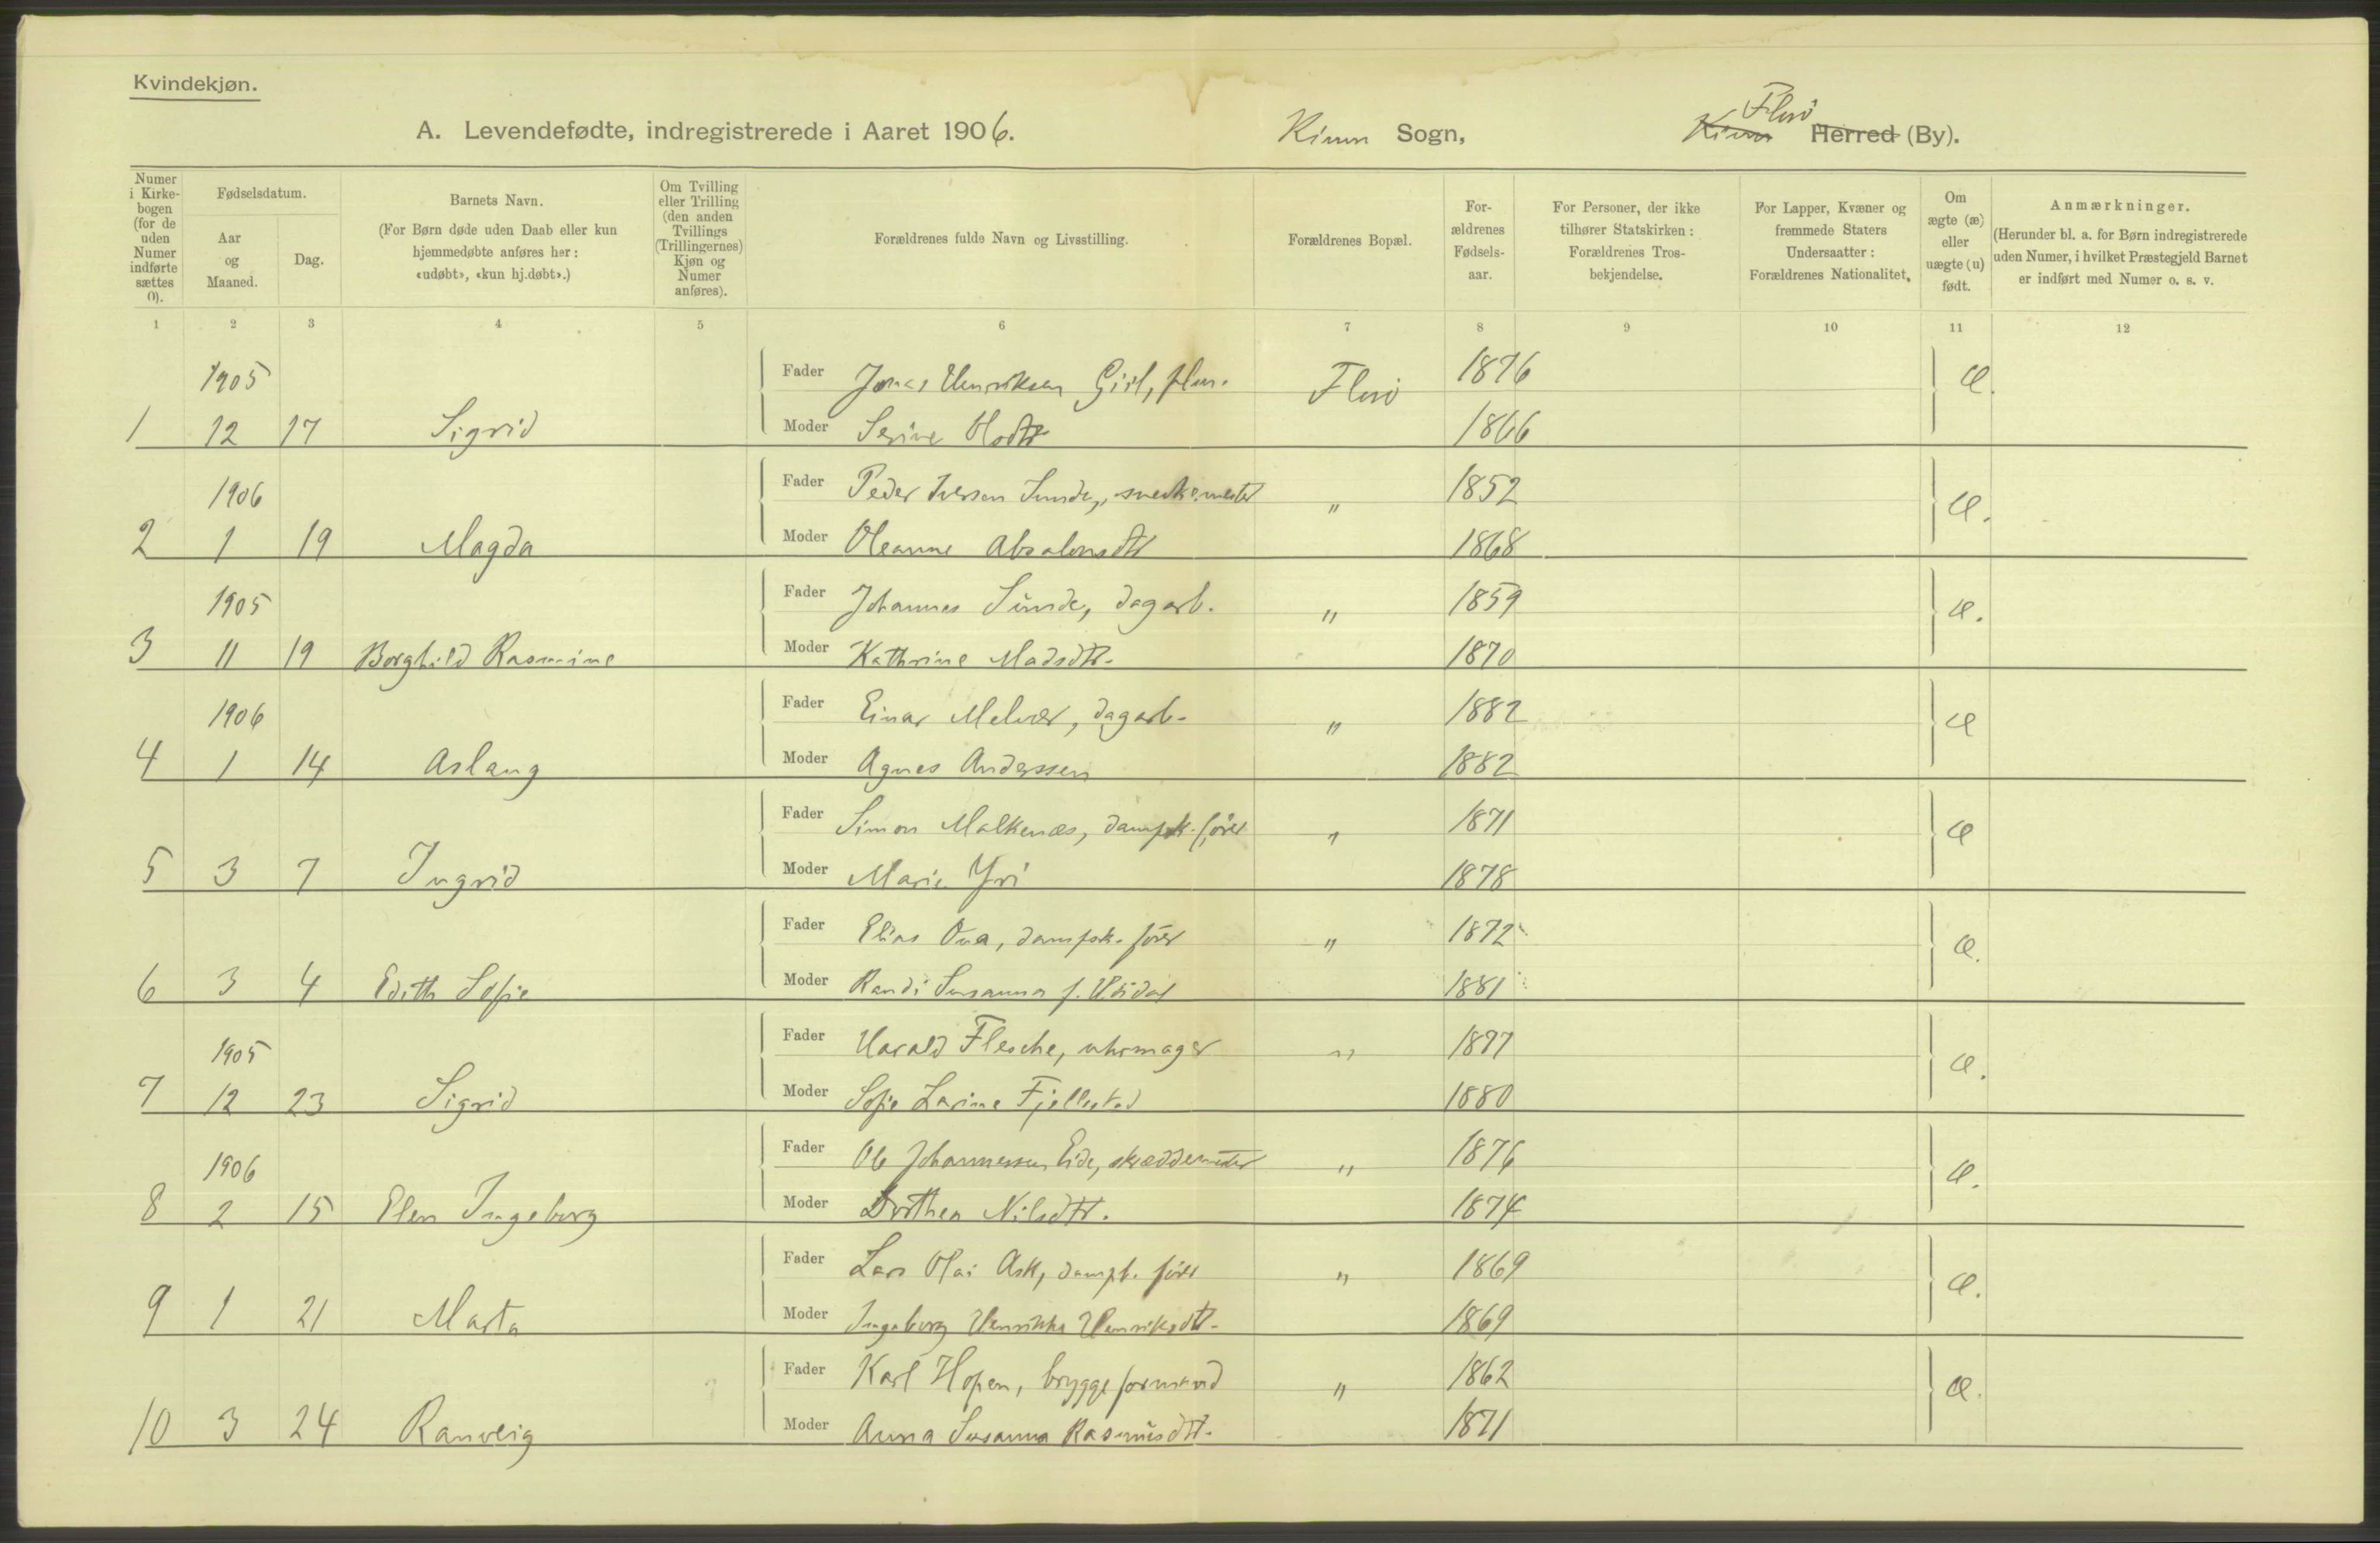 Kvindekjøn.
A. Levendefødte, indregistrerede i Aaret 1906. Kinn Sogn, Kinn Florö Herred (By).
Numer i Kirkebogen (for de uden Numer indførte sættes 0).
Fødselsdatum.
Aar og Maaned.
Dag.
Barnets Navn.
(For Børn døde uden Daab eller kun hjemmedøbte anføres her: «udøbt», «kun hj.døbt».)
Om Tvilling eller Trilling (den anden Tvillings (Trillingernes) Kjøn og Numer anføres).
Forældrenes fulde Navn og Livsstilling.
Forældrenes Bopæl.
Forældrenes Fødselsaar.
For Personer, der ikke tilhører Statskirken: Forældrenes Trosbekjendelse.
For Lapper, Kvæner og fremmede Staters Undersaatter: Forældrenes Nationalitet.
Om ægte (æ) eller uægte (u) født.
Anmærkninger.
(Herunder bl. a. for Børn indregistrerede uden Numer, i hvilket Præstegjeld Barnet er indført med Numer o. s. v.
1 2 3 4 5 6 7 8 9 10 11 12
1905 Fader Jonas Henriksen Florö 1876 æ.
1 12 17 Sigrid Moder Serine 1866
1906 Fader Peder Iversen Sunde, " 1852 æ.
2 1 19 Magda Moder Oleanne Absalonsdtr 1868
1905 Fader Johannes Sunde, dagarb. " 1859 æ.
3 11 19 Borghild Rasmine Moder Kathrine Madsdtr. 1870
1906 Fader Einar Melvær, dagarb. " 1882 æ
4 1 14 Aslaug Moder Agnes Anderssen 1882
Fader Simon Malkenæs, dampsk.förer " 1871 æ
5 3 7 Ingrid Moder Marie Yri 1878
Fader Elias dampsk. förer " 1872 æ.
6 3 4 Edith Sofie Moder Randi Susanna f. 1881
1905 Fader Harald Flesche, uhrmager " 1877 æ.
7 12 23 Sigrid Moder Sofie Larine Fjellestad 1880
1906 Fader Ole Johannessen Eide, skræddermester " 1876 æ.
8 2 15 Elen Ingeborg Moder Dorthea Nilsdtr. 1874
Fader Lars Olai Ask, förer " 1869 æ.
9 1 21 Marta Moder Ingeborg Henrikka Henriksdtr. 1869
Fader Karl Hopen, bryggeformand " 1862 æ.
10 3 24 Ranveig Moder Anna Susanna Rasmusdtr. 1871